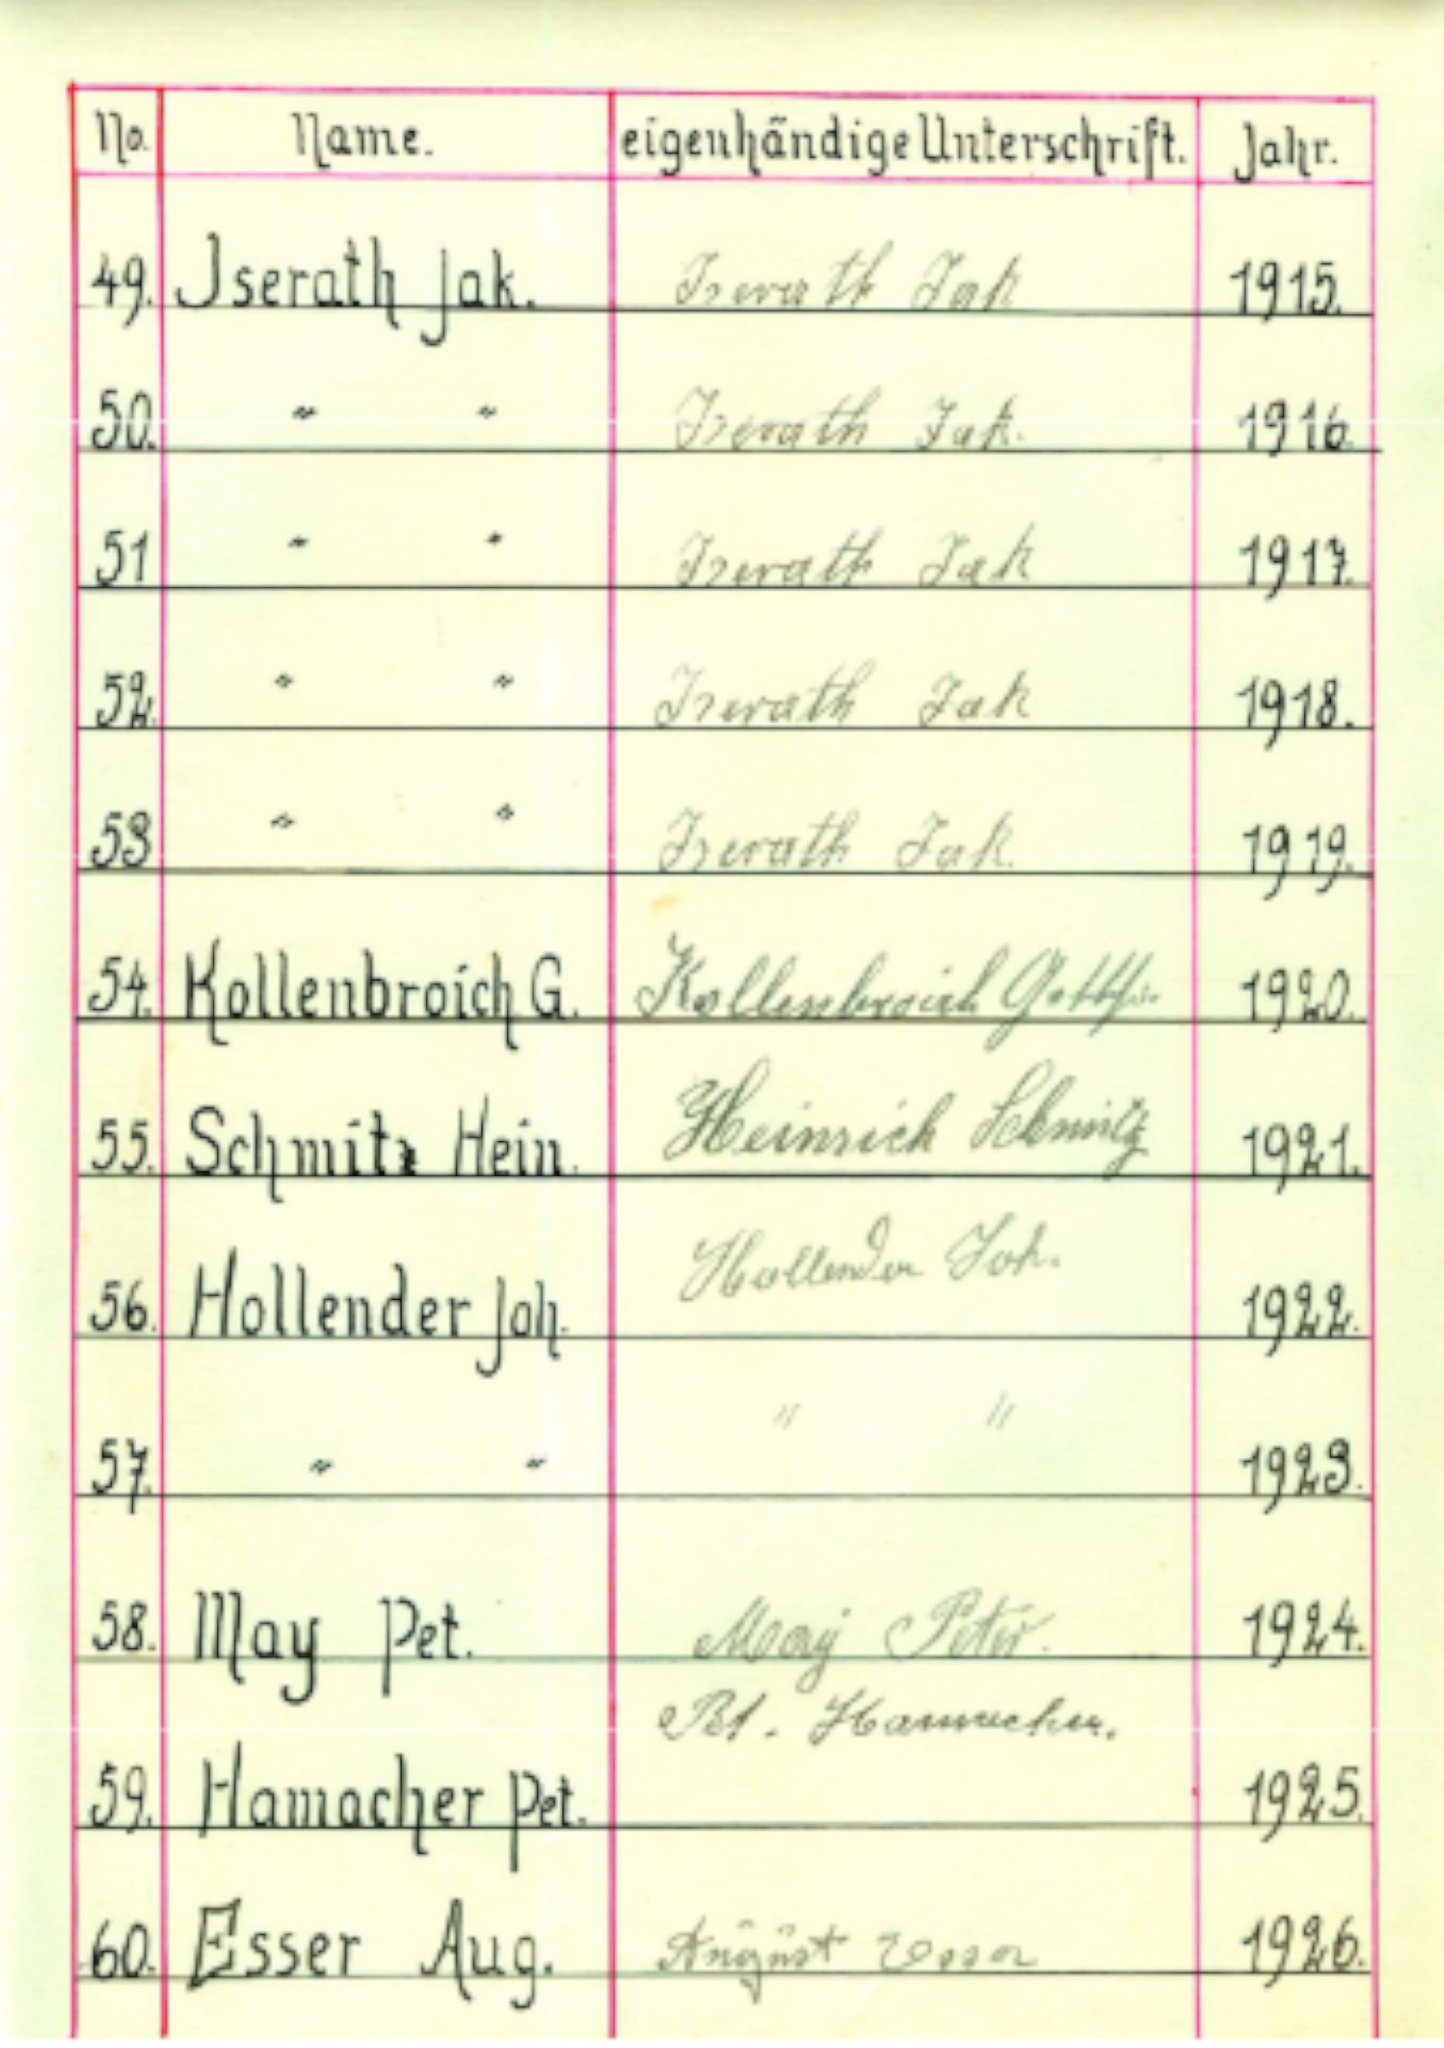 No. Name. eigenhändige Unterschrift. Jahr.
49. Iserath Jak. Iserath Jak 1915.
50. " " Iserath Jak. 1916.
51 " " Iserath Jak 1917.
52. " " Iserath Jak 1918.
53 " " Iserath Jak. 1919.
54. Kollenbroich G. Kollenbroich Gottfr. 1920.
55. Schmitz Hein. Heinrich Schmitz 1921.
56. Hollender Joh. Hollender Joh. 1922.
57. " " " " 1923.
58. May Pet. May Peter. 1924.
59. Hamacher Pet. Pet. Hamacher. 1925.
60. Esser Aug. August Esser 1926.